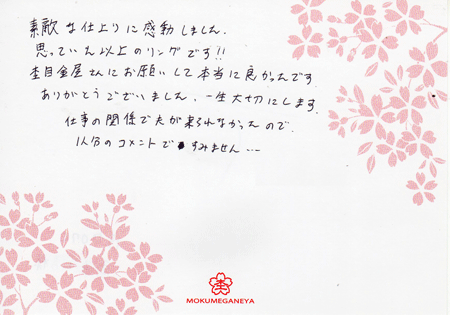 素敵な仕上りに感動しました。
思っていた以上のリングです!!
杢目金屋さんにお願いして本当に良かったです。
ありがとうございました。一生大切にします。
仕事の関係で夫が来られなかったので
1人分のコメントですみません…
MOKUMEGANEYA